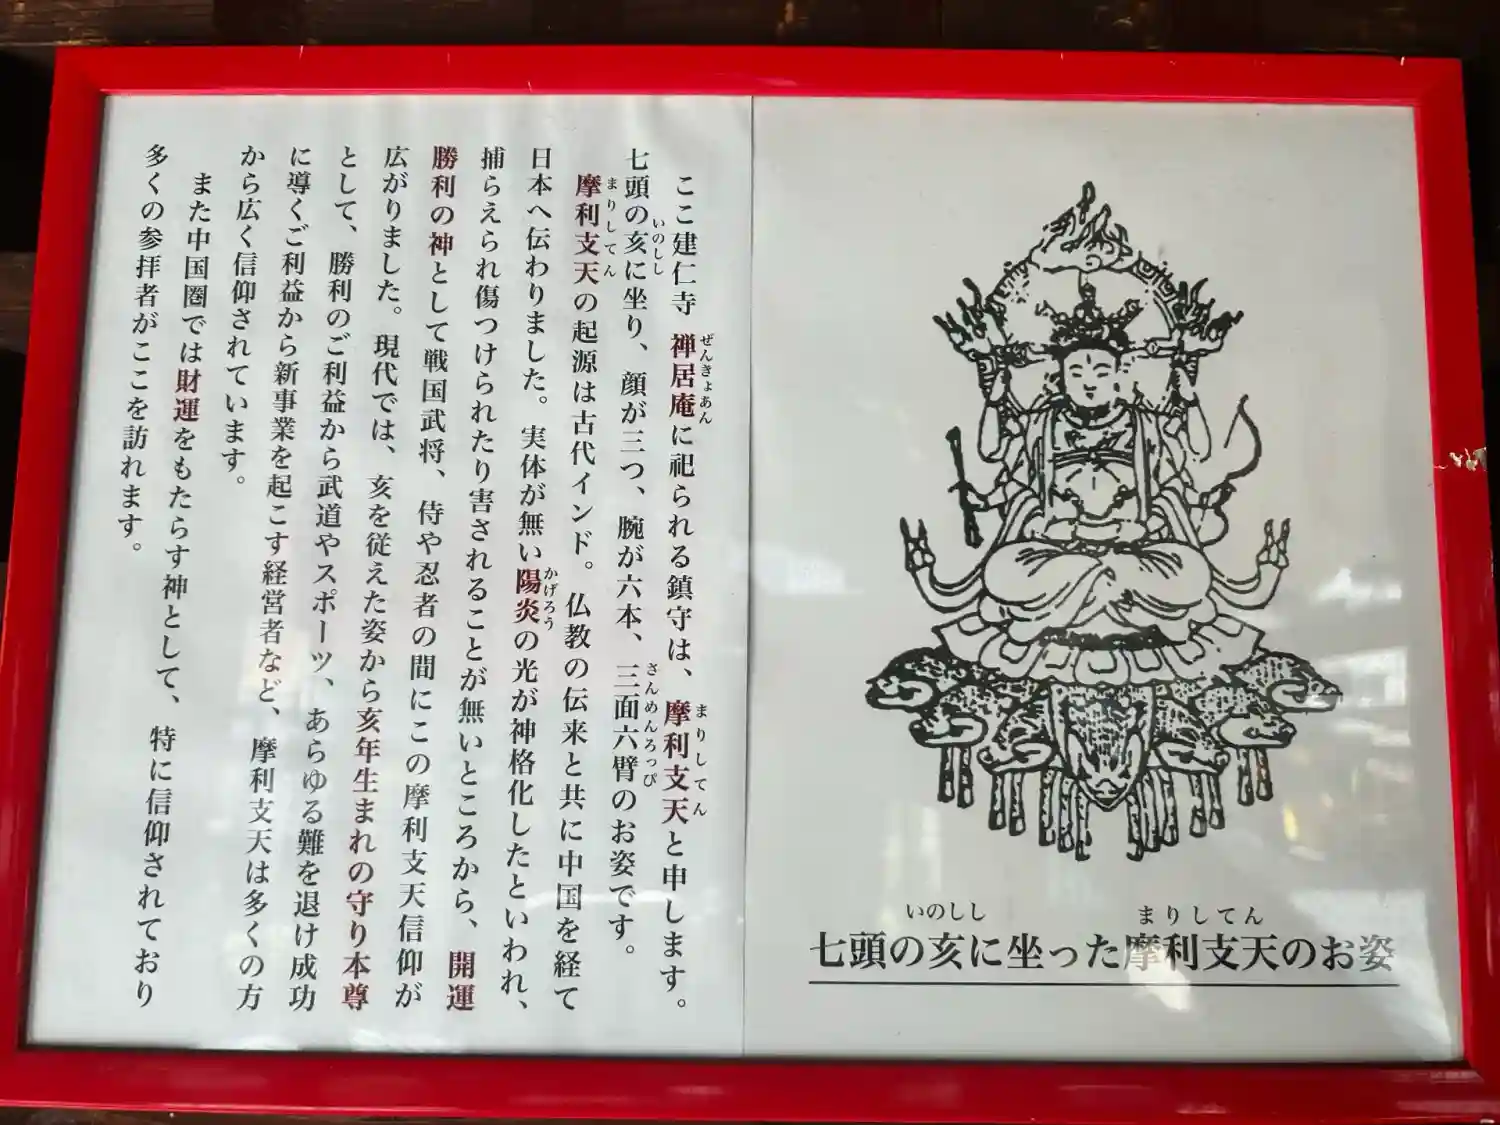 ここ建仁寺 禅居庵に祀られる鎮守は、摩利支天と申します。
ぜんきょあん
まりしてん
七頭の亥に坐り、顔が三つ、腕が六本、三面六臂のお姿です。
いのしし
さんめんろっぴ
摩利支天の起源は古代インド。仏教の伝来と共に中国を経て
まりしてん
日本へ伝わりました。実体が無い陽炎の光が神格化したといわれ、
かげろう
捕らえられ傷つけられたり害されることが無いところから、開運
勝利の神として戦国武将、侍や忍者の間にこの摩利支天信仰が
広がりました。現代では、亥を従えた姿から亥年生まれの守り本尊
として、勝利のご利益から武道やスポーツ、あらゆる難を退け成功
に導くご利益から新事業を起こす経営者など、摩利支天は多くの方
から広く信仰されています。
また中国圏では財運をもたらす神として、特に信仰されており
多くの参拝者がここを訪れます。
いのしし まりしてん
七頭の亥に坐った摩利支天のお姿